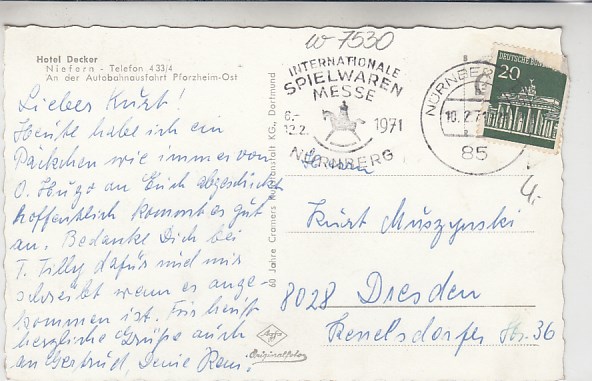 w-7530
Hotel Decker
Niefern - Telefon 4 33/4
An der Autobahnausfahrt Pforzheim-Ost
Lieber Kurt!
Heute habe ich ein
Päckchen wie immer von
O. Hugo an Euch abgeschickt
hoffentlich kommt es gut
an. Bedanke Dich bei
T. Tilly dafür und mir
schreibt wenn es ange-
kommen ist. Für heute
herzliche Grüße auch
an Gertrud, Deine
60 Jahre Cramers Kunstanstalt KG., Dortmund
INTERNATIONALE
SPIELWAREN
MESSE
6.-
12.2.
1971
NÜRNBERG
NÜRNBERG
10.2.71
85
DEUTSCHE BUN
20
4.
Herrn
Kurt Muszynski
8028 Dresden
Kesselsdorfer Str. 36
Agfa
Originalfoto